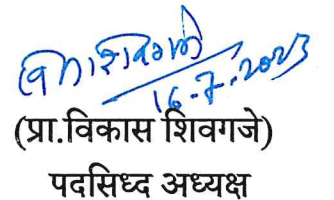 16-7-2023
(प्रा.विकास शिवगजे)
पदसिध्द अध्यक्ष